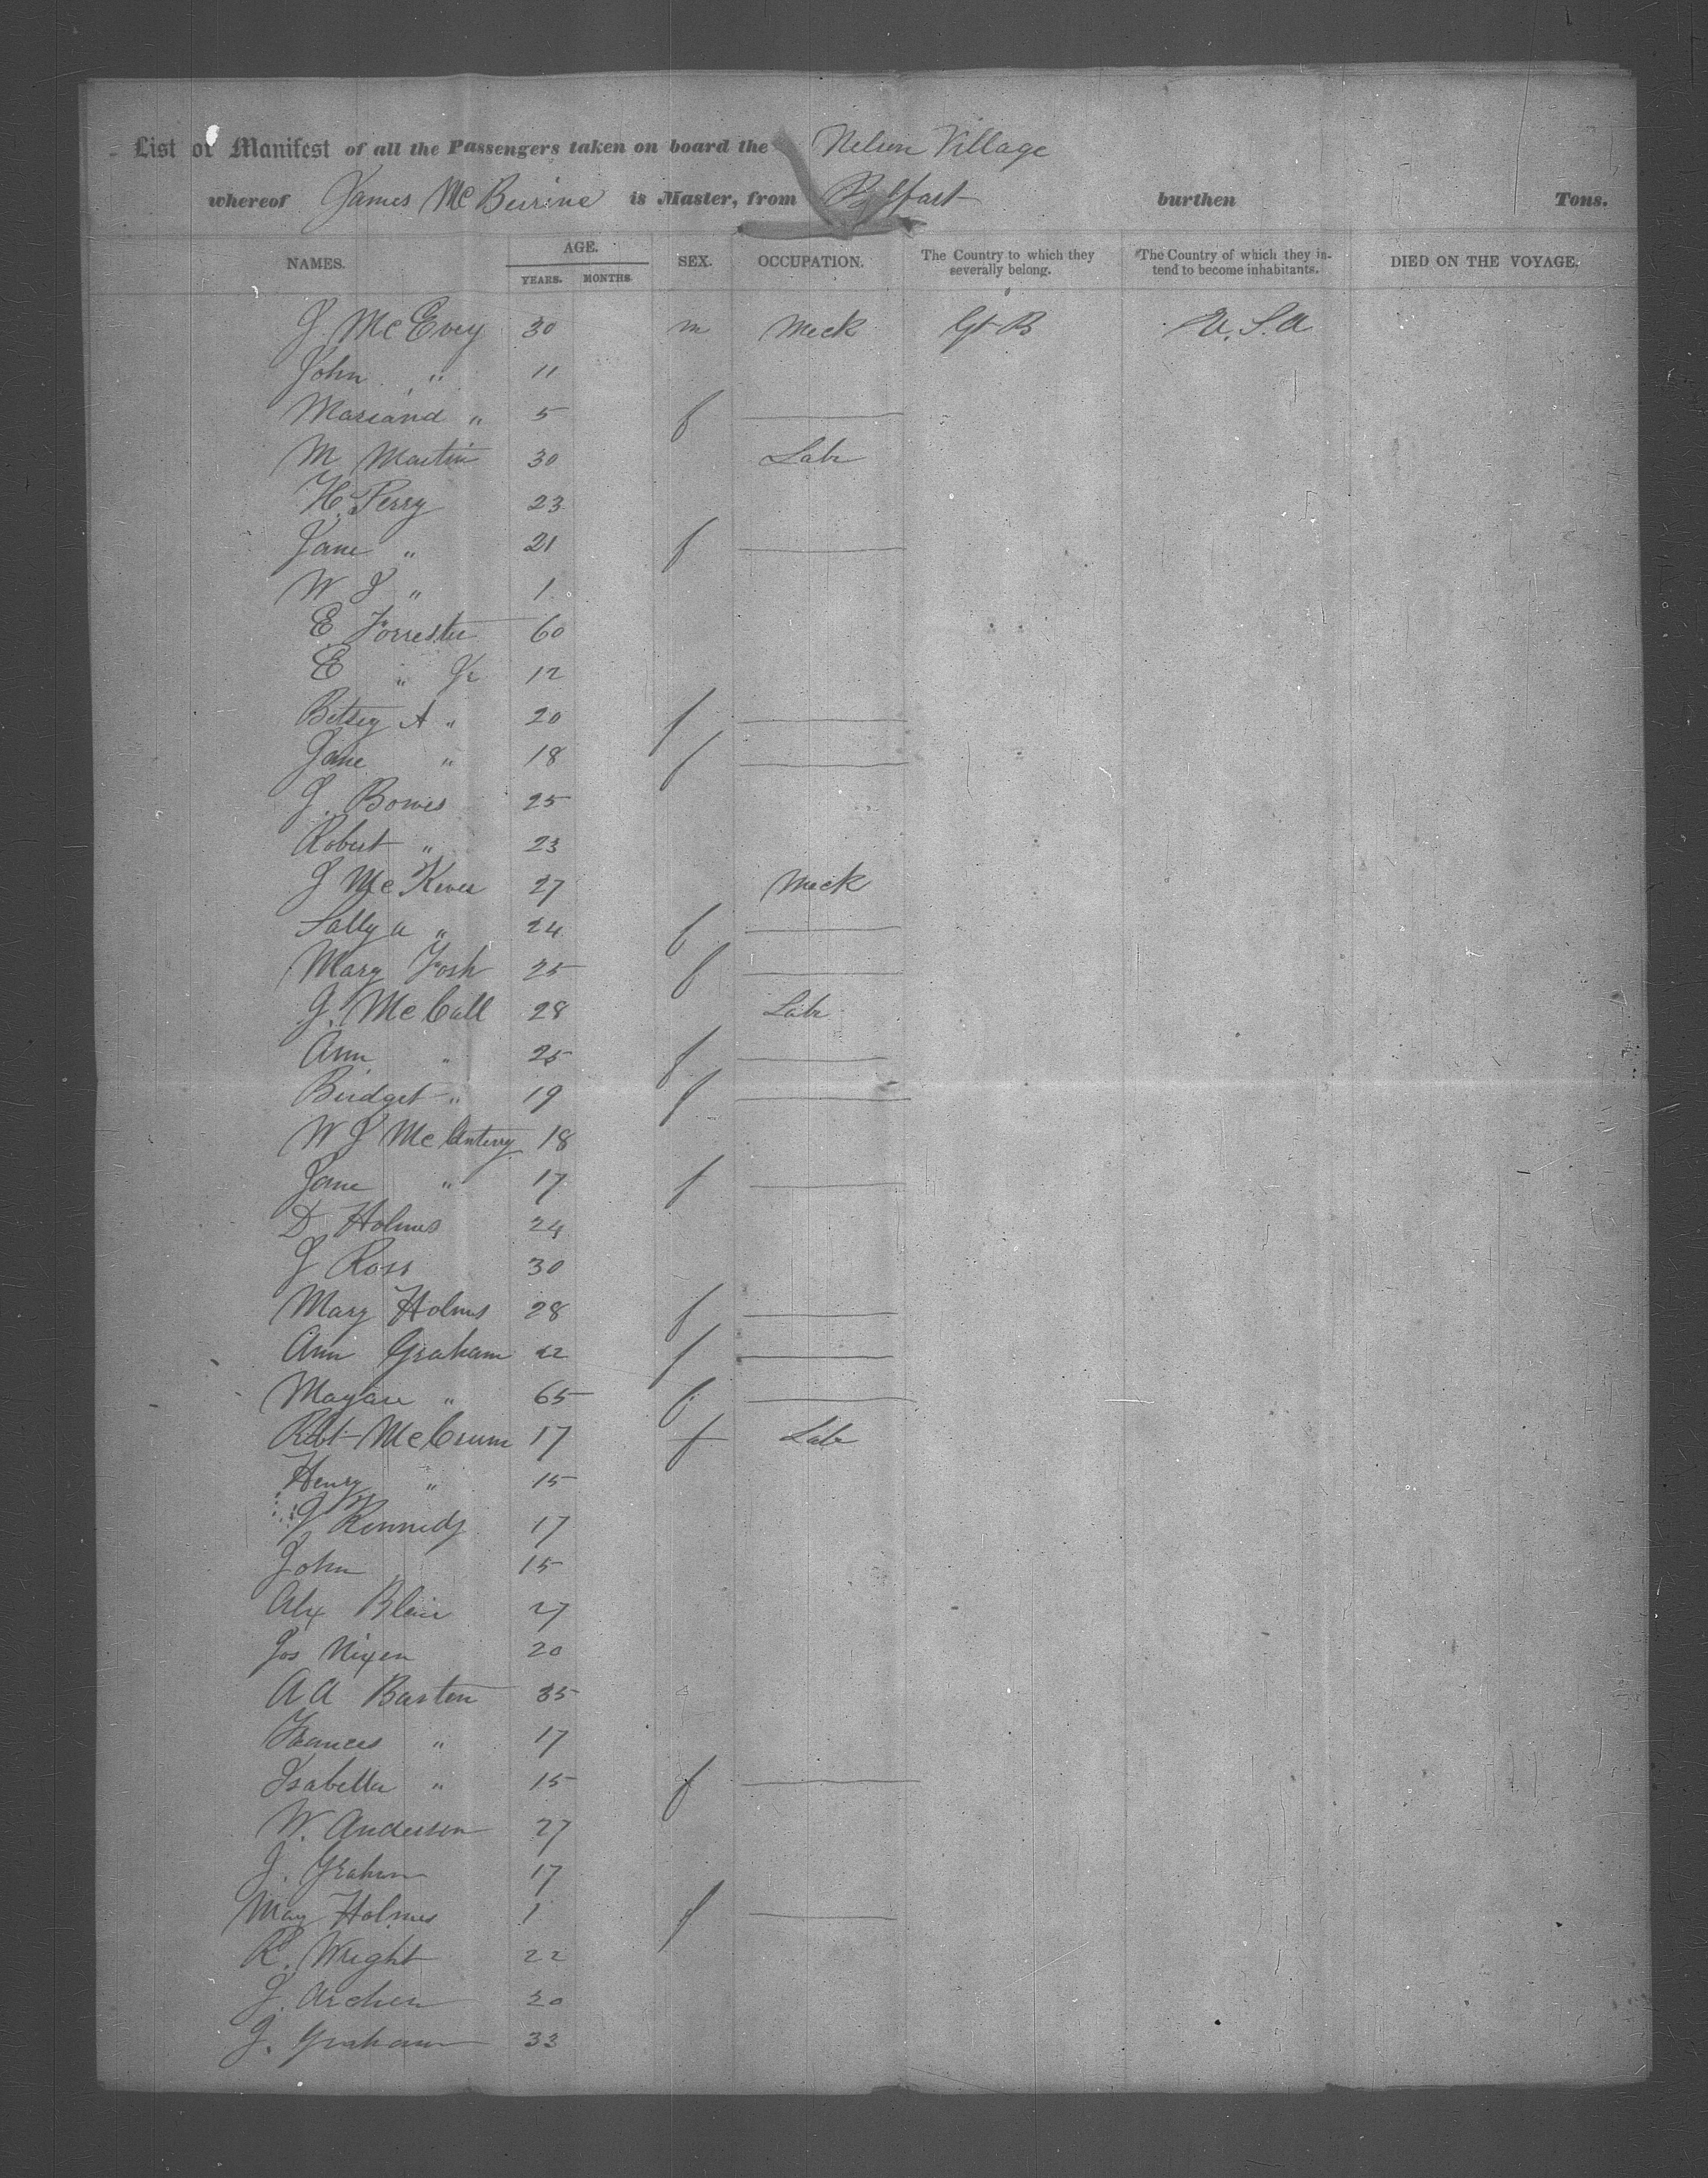 List or Manifest of all the Passengers taken on board the Nelson Village
whereof James McBurine is Master, from Belfast burthen Tons.
NAMES. AGE. YEARS. MONTHS. SEX. OCCUPATION. The Country to which they severally belong. The Country of which they intend to become inhabitants. DIED ON THE VOYAGE.
J. McEvey 30 m Meck Gt B U.S.A
John " 11
" 5 f
M Martin 30 Labr
H. Perry 23
Jane " 21 f
W J " 1
E Forrester 60
E " Jr 12
Betsey A " 20 f
Jane " 18 f
J. Bowes 25
Robert " 23
J McKever 27 Meck
Sally A " 24 f
Mary Fosh 25 f
J. McCall 28 Labr
Ann " 25 f
Bridget " 19 f
W J 18
Jane " 17 f
D Holmes 24
J Ross 30
Mary Holms 28 f
Ann Graham 22 f
" 65 f
Robt McCrum 17 f Labr
Henry " 15
J Kennedy 17
John 15
Alex Blair 27
Jos Nixen 20
A A Barton 35
Frances " 17
Isabella " 15 f
W. Anderson 27
J. Graham 17
May Holmes 1 f
R. Wright 22
J. Archer 20
J. Graham 33